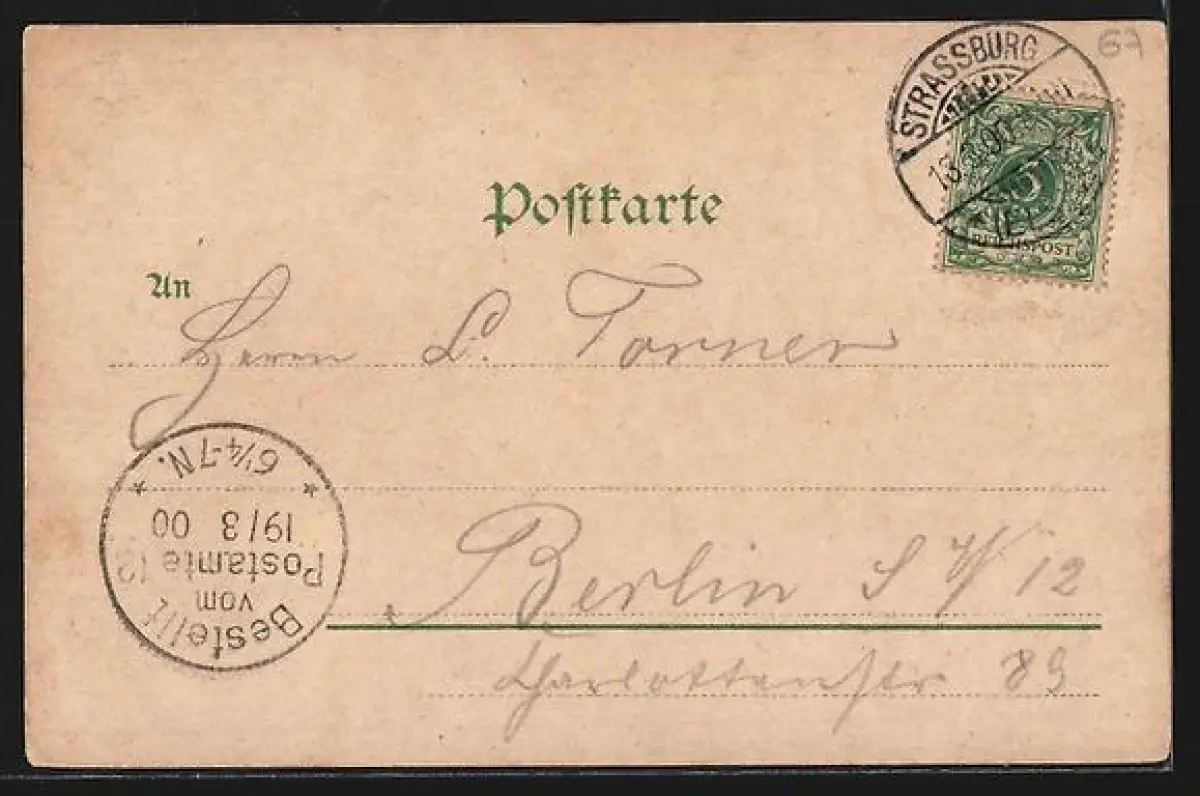 67
STRASSBURG
13 00
(ELS
REICHSPOST
Postkarte
An
Herrn L. Torner
Berlin S W 12
Charlottenstr 89
Bestellt
vom
Postamte 12
19/3 00
6¼-7N.